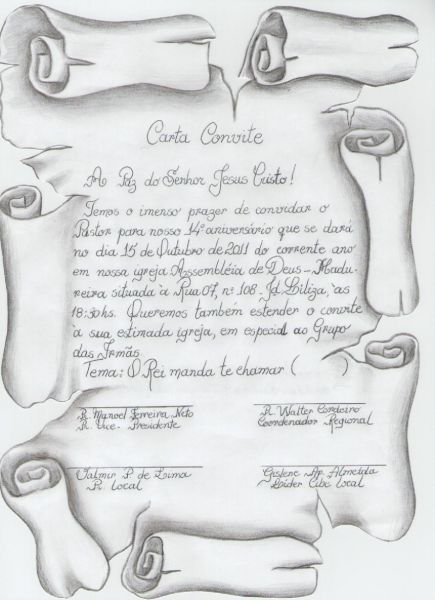 Carta Convite
A Paz do Senhor Jesus Cristo!
Temos o imenso prazer de convidar o
Pastor para nosso 14º aniversário que se dará
no dia 15 de Outubro de 2011 do corrente ano
em nossa igreja Assembléia de Deus - Madu-
reira situada à Rua 07, nº 108 - Jd Litiza, às
18:30hs. Queremos também estender o convite
à sua estimada igreja, em especial ao Grupo
das Irmãs.
Tema: O Rei manda te chamar ( )
P. Manoel Ferreira Neto
P. Vice-Presidente
P. Walter Cordeiro
Coordenador Regional
Valmir P. de Lima
P. Local
Gislene Ap. Almeida
Líder Cibe Local